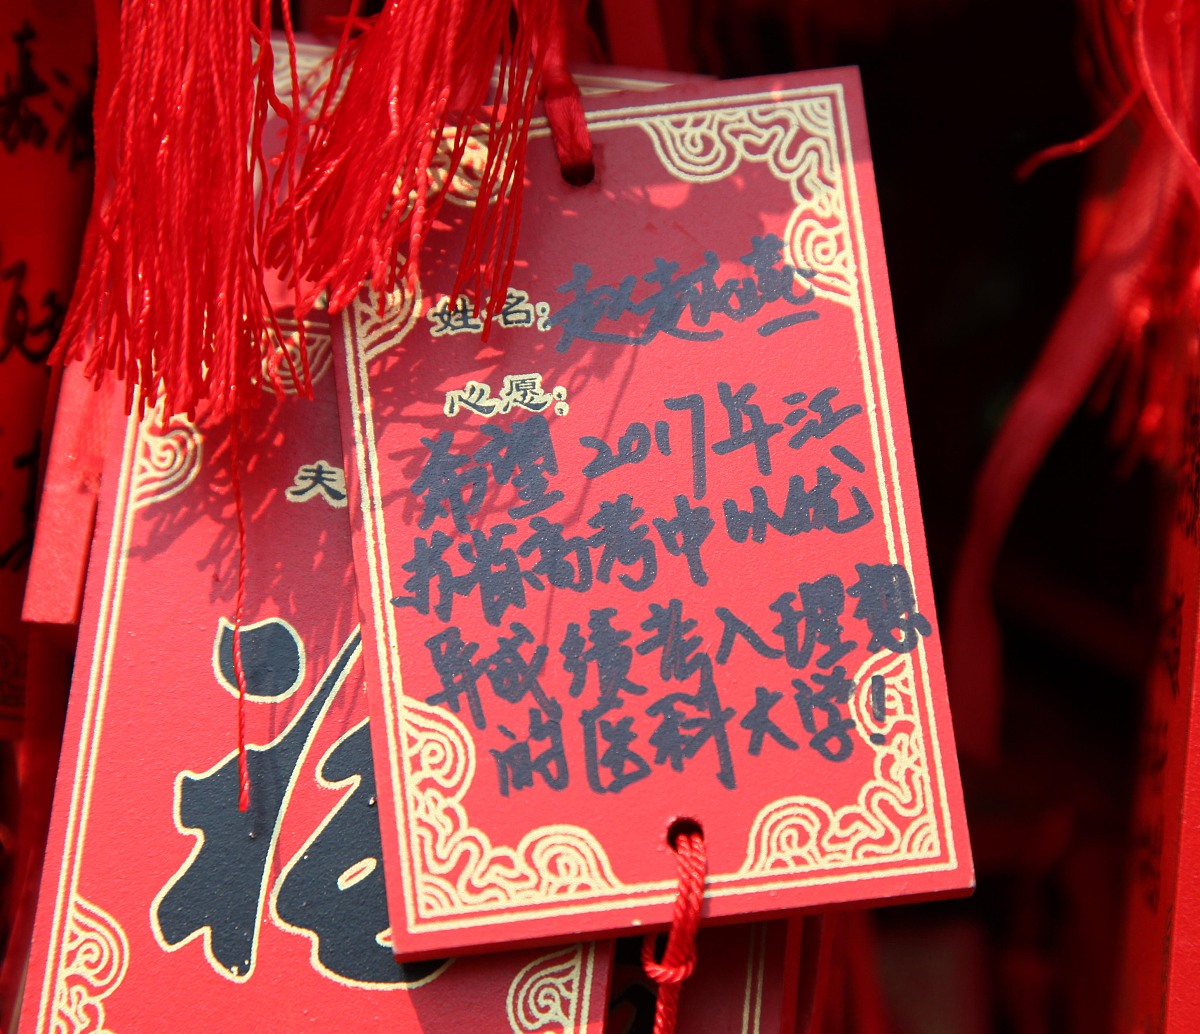 姓名：赵赵燕
心愿：
希望2017年江
苏省高考中以优
异成绩考入理想
的医科大学！
夫
福